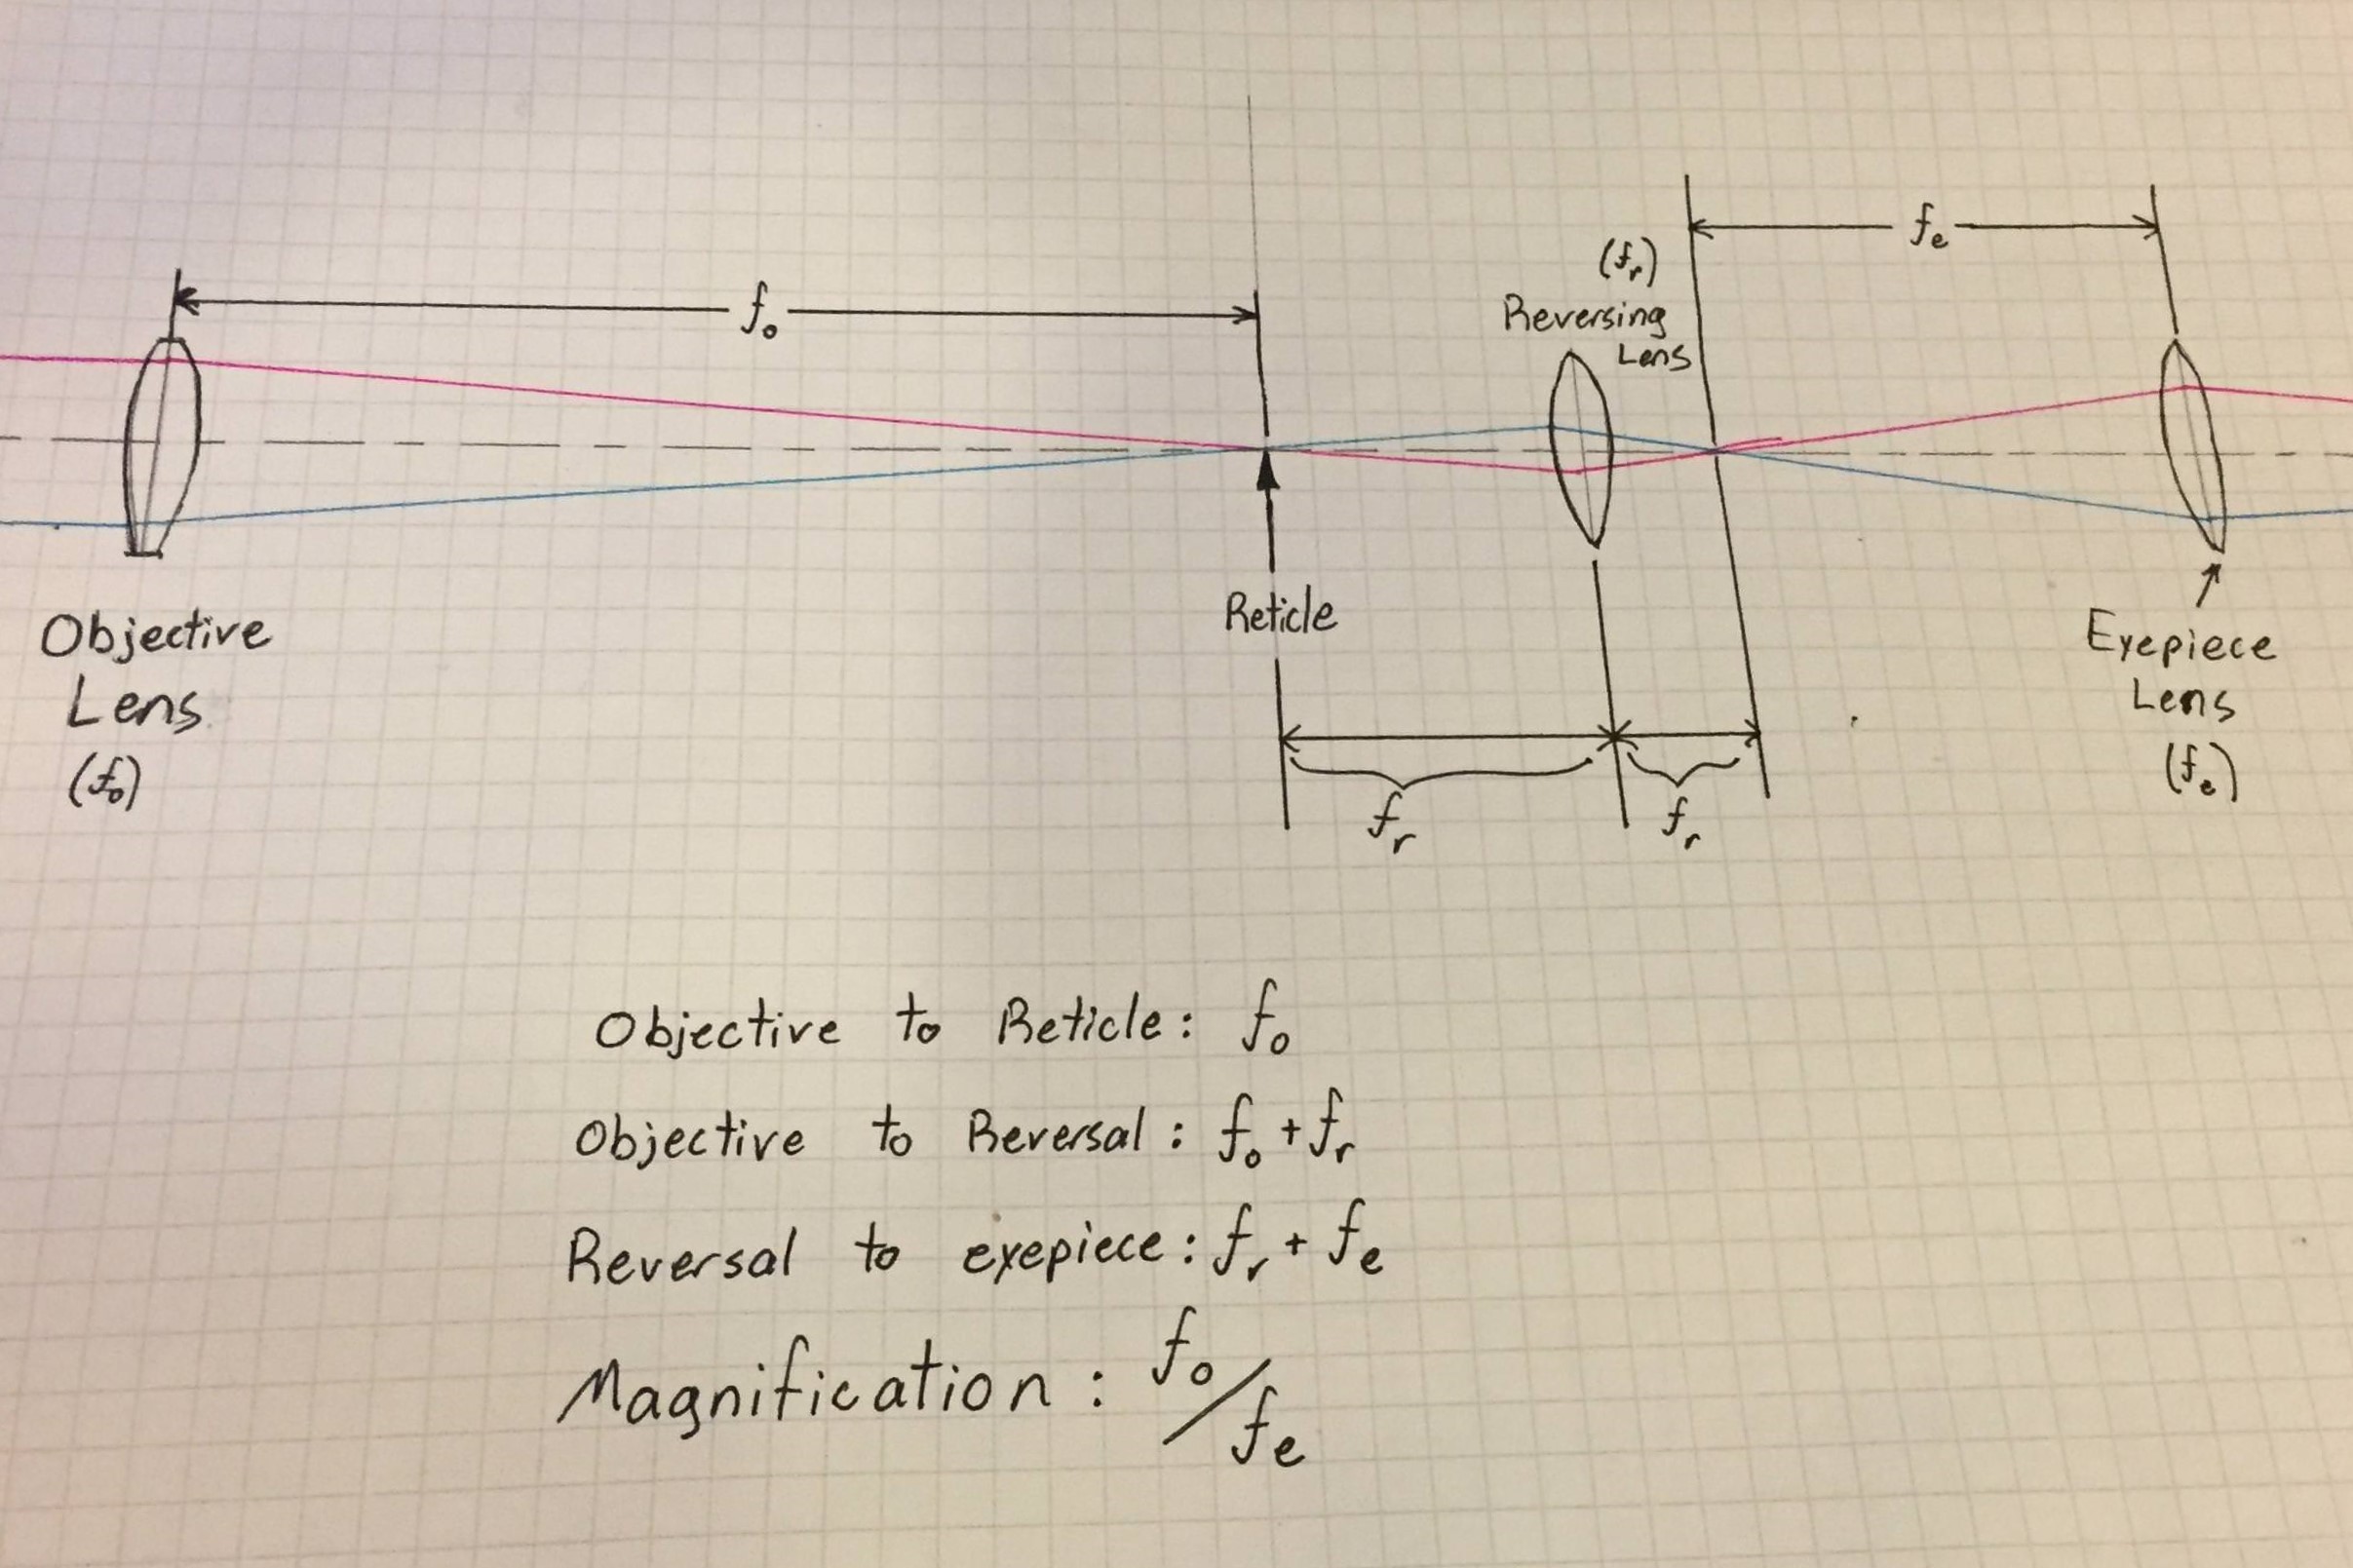 fₒ
fₑ
(fᵣ)
Reversing
Lens
Reticle
Objective
Lens
(fₒ)
Eyepiece
Lens
(fₑ)
fᵣ
fᵣ
Objective to Reticle: fₒ
Objective to Reversal: fₒ + fᵣ
Reversal to eyepiece: fᵣ + fₑ
Magnification: fₒ/fₑ